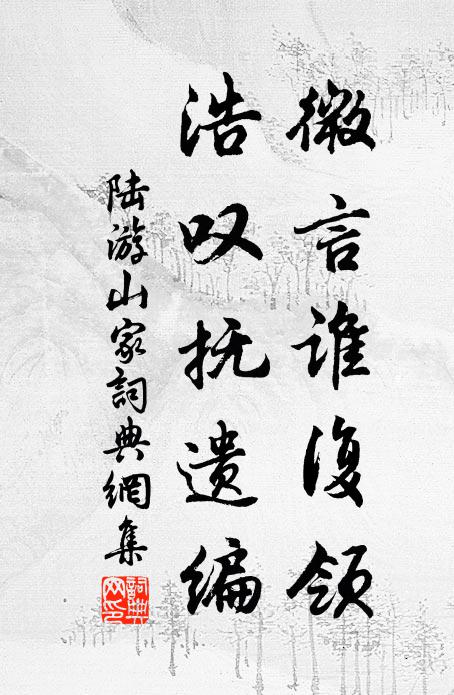 微言谁复领
浩叹抚遗编
陆游山家詞典網集
詞典网印